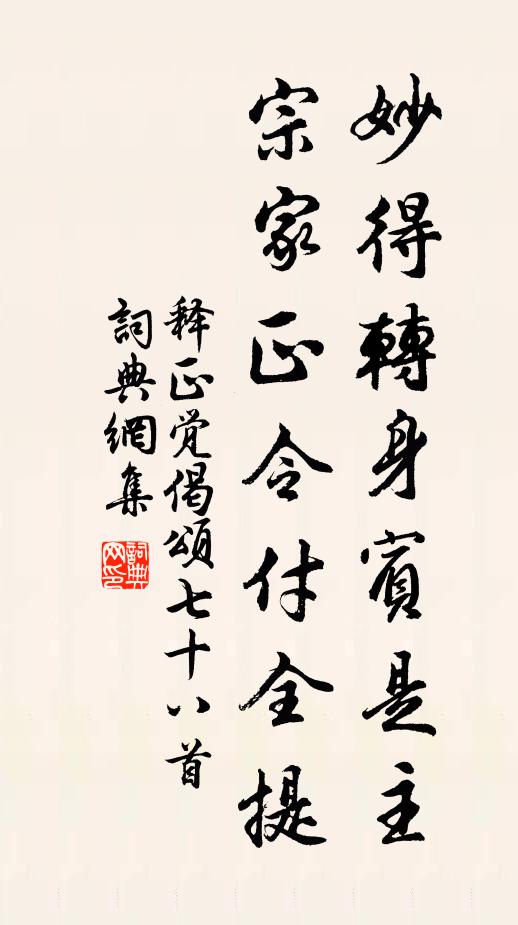 妙得轉身賓是主
宗家正令付全提
释正觉偈頌七十八首
詞典網集
詞典網印